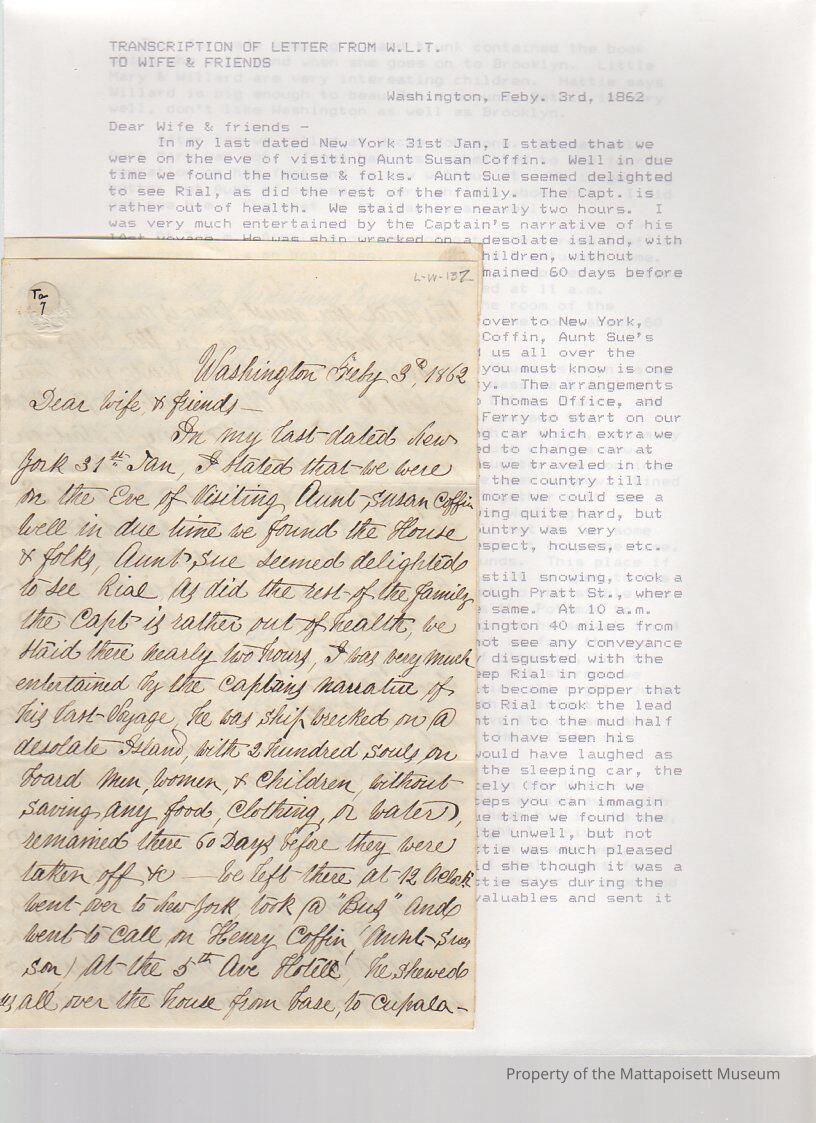 TRANSCRIPTION OF LETTER FROM W.L.T.
TO WIFE & FRIENDS
Washington, Feby. 3rd, 1862
Dear Wife & friends -
In my last dated New York 31st Jan, I stated that we
were on the eve of visiting Aunt Susan Coffin. Well in due
time we found the house & folks. Aunt Sue seemed delighted
to see Rial, as did the rest of the family. The Capt. is
rather out of health. We staid there nearly two hours. I
was very much entertained by the Captain's narrative of his
last voyage. He was ship wrecked on a desolate island, with
hildren, without
mained 60 days before
over to New York,
Coffin, Aunt Sue's
us all over the
you must know is one
y. The arrangements
Thomas Office, and
Ferry to start on our
g car which extra we
ed to change car at
s we traveled in the
the country till
more we could see a
ing quite hard, but
untry was very
espect, houses, etc.
still snowing, took a
ough Pratt St., where
same. At 10 a.m.
ington 40 miles from
not see any conveyance
disgusted with the
eep Rial in good
t become propper that
so Rial took the lead
nt in to the mud half
to have seen his
would have laughed as
the sleeping car, the
tely (for which we
teps you can immagin
ue time we found the
ite unwell, but not
ttie was much pleased
id she though it was a
ttie says during the
valuables and sent it
L-W-137
To
7
Washington Feby 3d, 1862
Dear Wife & friends—
In my last dated New
York 31st Jan, I stated that we were
on the Eve of Visiting Aunt Susan Coffin
well in due time we found the House
& folks, Aunt Sue seemed delighted
to see Rial as did the rest of the family
the Capt is rather out of health, we
staid there nearly two hours, I was very much
entertained by the Captains narrative of
his last Voyage, he was ship wrecked on a
desolate Island, with 2 hundred souls on
board Men, Women, & Children, without
saving any food, Clothing, or water,
remained there 60 Days before they were
taken off &c — We left there at 12 Oclock
went over to New York, took a "Bus" and
went to call on Henry Coffin (Aunt Sues
son) At the 5th Ave Hotell, he shewed
us all over the house from base, to Cupala—
Property of the Mattapoisett Museum